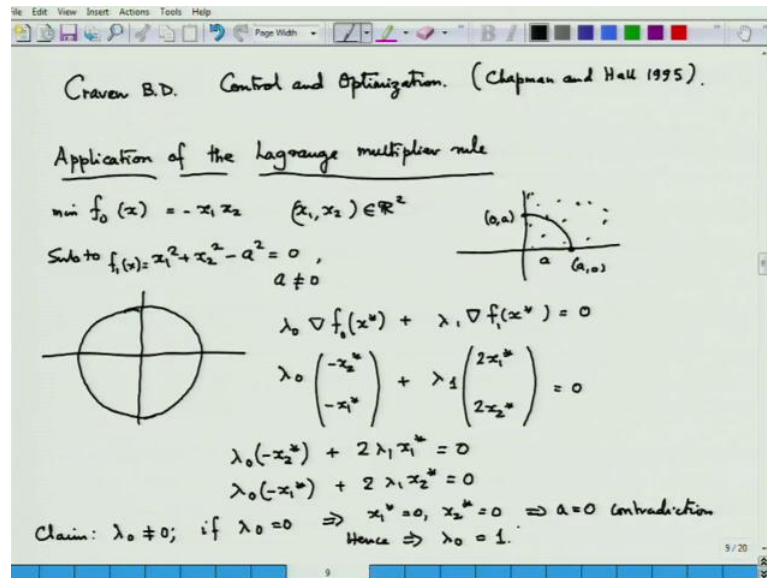 File Edit View Insert Actions Tools Help
Page Width
B I
Craven B.D. Control and Optimization. (Chapman and Hall 1995).
Application of the Lagrange multiplier rule
min f₀(x) = -x₁x₂ (x₁, x₂) ∈ ℝ²
Sub to f₁(x) = x₁² + x₂² - a² = 0,
a ≠ 0
(0,a)
a (a,0)
λ₀ ∇f₀(x*) + λ₁ ∇f₁(x*) = 0
λ₀ (-x₂* -x₁*) + λ₁ (2x₁* 2x₂*) = 0
λ₀(-x₂*) + 2λ₁x₁* = 0
λ₀(-x₁*) + 2λ₁x₂* = 0
Claim: λ₀ ≠ 0; if λ₀ = 0 ⇒ x₁* = 0, x₂* = 0 ⇒ a = 0 contradiction
Hence ⇒ λ₀ = 1.
9/20
9